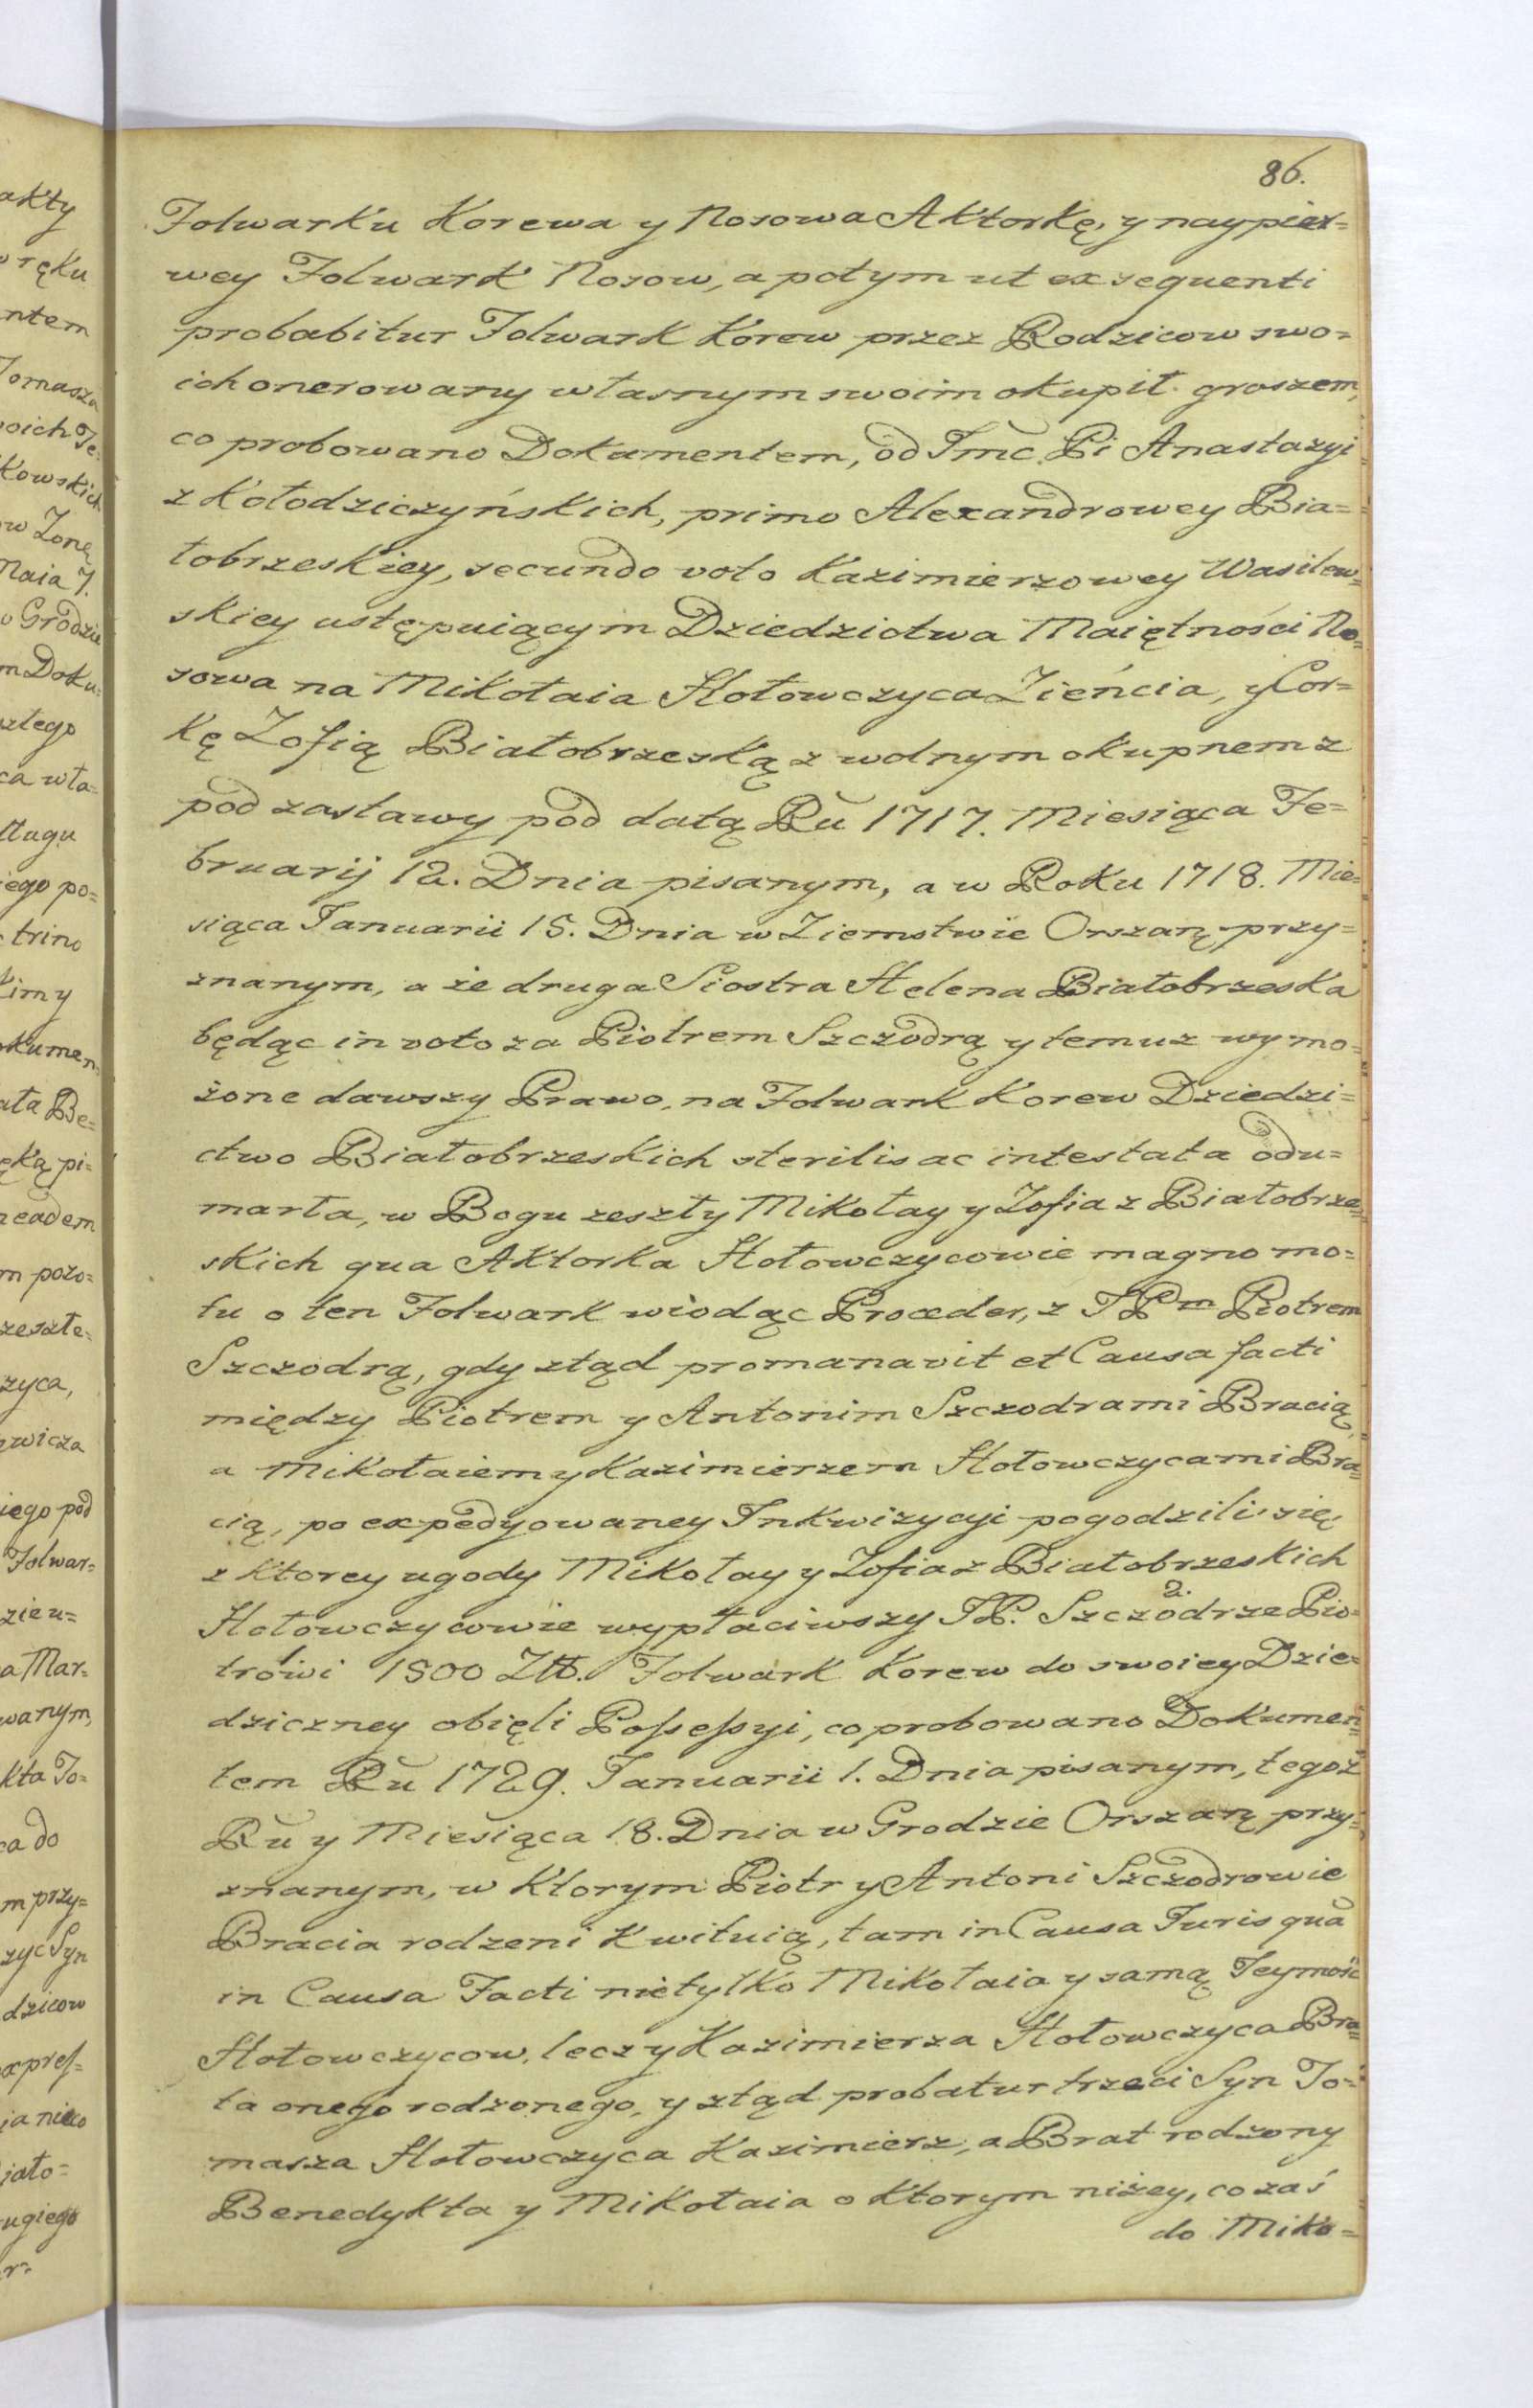 86.
Folwarku Korewa y Nosowa Aktorkę, y naypier=
wey Folwark Nosow, a potym ut ex sequenti
probabitur Folwark Korew przez Rodzicow swo=
ich onerowany własnym swoim okupił groszem,
co probowano Dokumentem, od Jmc. Pi Anastazyi
z Kołodziczyńskich, primo Alexandrowey Bia=
łobrzeskiey, secundo voto Kazimierzowey Wasilew=
skiey ustępuiącym Dziedzictwa Maiętności No=
sowa na Mikołaia Hołowczyca Zieńcia, y Cor=
kę Zofią Białobrzeską z wolnym okupnem z
pod zastawy pod datą Ru 1717. Miesiąca Fe=
bruarij 12. Dnia pisanym, a w Roku 1718. Mie=
siąca Januarii 15. Dnia w Ziemstwie Orszan: przy=
znanym, a że druga Siostra Helena Białobrzeska
będąc in voto za Piotrem Szczodrą y temuz wymo=
żone dawszy Prawo, na Folwark Korew Dziedzi=
ctwo Białobrzeskich sterilis ac intestata odu=
marła, w Bogu zeszły Mikołay y Zofia z Białobrze=
skich qua Aktorka Hołowczycowie magno mo=
tu o ten Folwark wiodąc Proceder, z JPm Piotrem
Szczodrą, gdy ztąd promanavit et Causa facti
między Piotrem y Antonim Szczodrami Bracią,
a Mikołaiem y Kazimierzem Hołowczycami Bra=
cią, po expedyowaney Inkwizycyi pogodzili się,
z ktorey ugody Mikołay y Zofia z Białobrzeskich
Hołowczycowie wypłaciwszy JP. Szczodrze Pio=
trowi 1500 Zł. Folwark Korew do swoiey Dzie=
dziczney obięli Possessyi, co probowano Dokumen=
tem Ru 1729. Januarii 1. Dnia pisanym, tegoż
Ru y Miesiąca 18. Dnia w Grodzie Orszan: przy=
znanym, w ktorym Piotr y Antoni Szczodrowie
Bracia rodzeni kwituią, tam in Causa Juris qua
in Causa Facti nietylko Mikołaia y samą Jeymość
Hołowczycow, lecz y Kazimierza Hołowczyca Bra=
ta onego rodzonego, y ztąd probatur trzeci Syn To=
masza Hołowczyca Kazimierz, a Brat rodzony
Benedykta y Mikołaia o ktorym niżey, co zaś
do Miko=